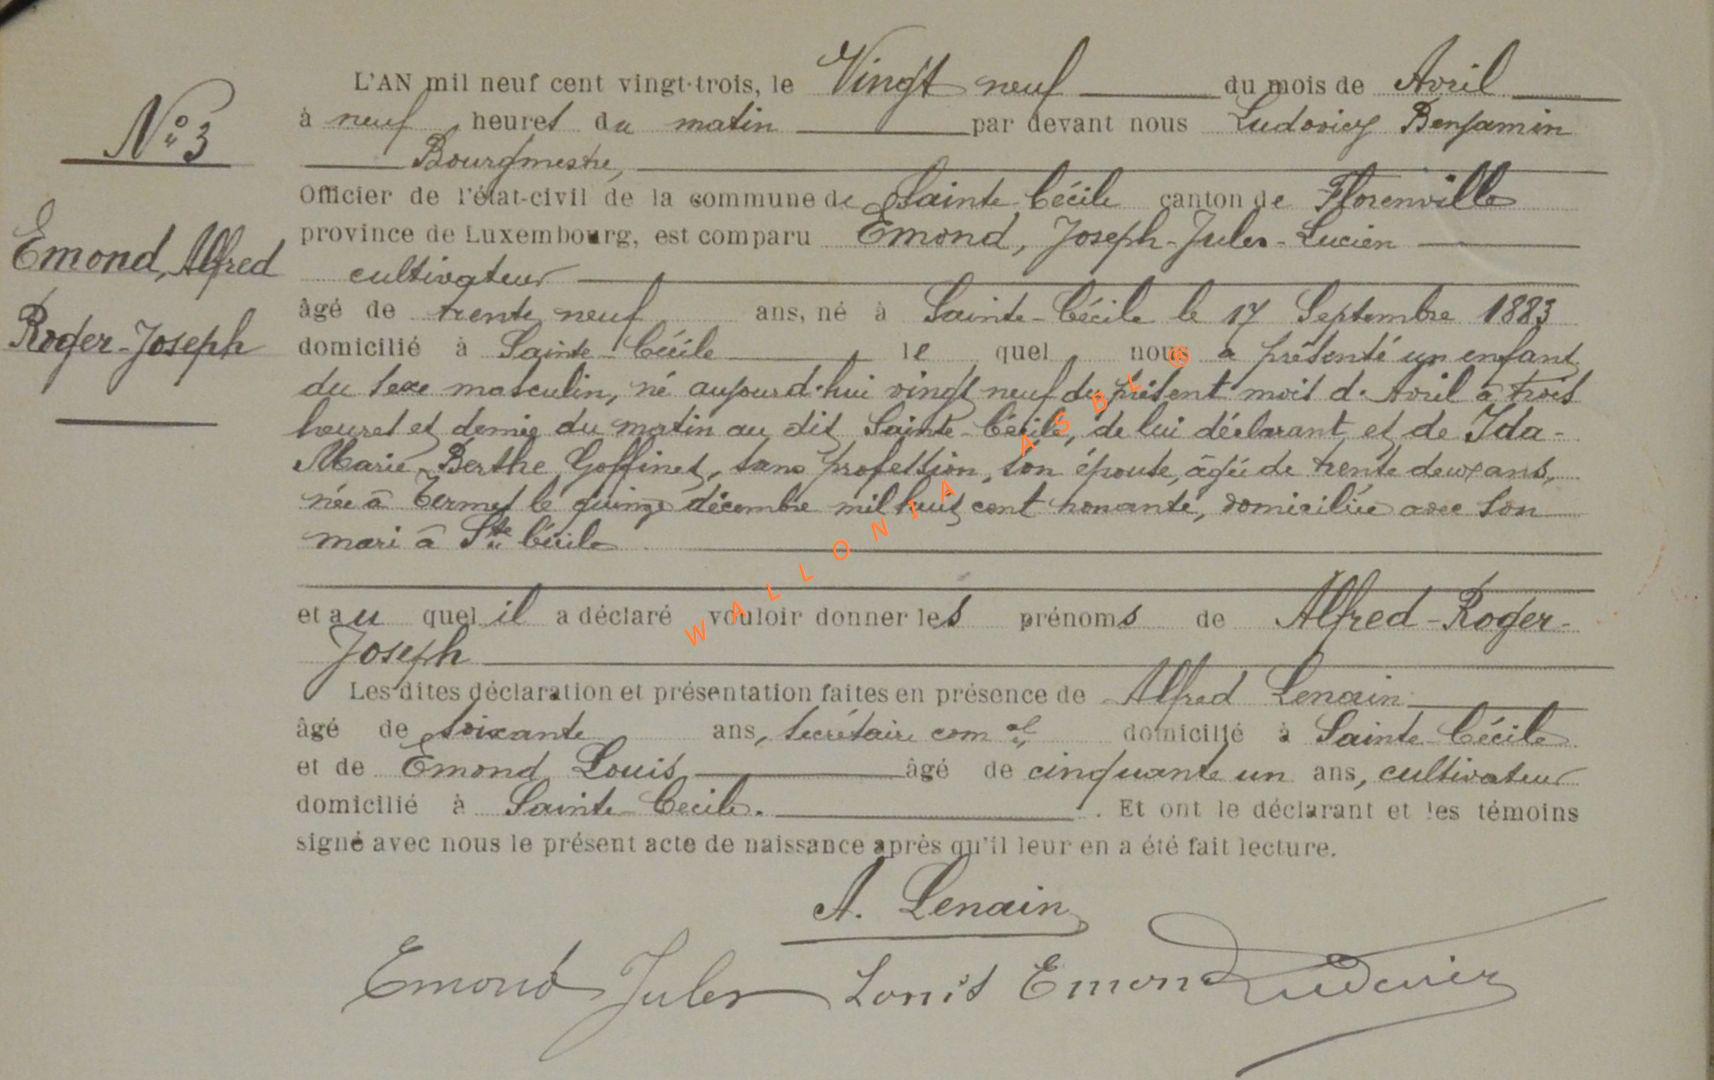 N° 3
Emond, Alfred
Roger-Joseph
L'AN mil neuf cent vingt-trois, le Vingt neuf du mois de Avril
à neuf heures du matin par devant nous Ludovicy Benjamin
Bourgmestre,
Officier de l'état-civil de la commune de Sainte-Cécile canton de Florenville
province de Luxembourg, est comparu Emond, Joseph-Jules-Lucien
cultivateur
âgé de trente neuf ans, né à Sainte-Cécile le 17 Septembre 1883
domicilié à Sainte-Cécile le quel nous a présenté un enfant
du sexe masculin, né aujourd'hui vingt neuf du présent mois d'Avril à trois
heures et demie du matin au dit Sainte-Cécile, de lui déclarant et de Ida-
Marie-Berthe Goffinet, sans profession, son épouse, âgée de trente deux ans,
née à Termes le quinze décembre mil huit cent nonante, domiciliée avec son
mari à Ste Cécile
et au quel il a déclaré vouloir donner les prénoms de Alfred-Roger-
Joseph
Les dites déclaration et présentation faites en présence de Alfred Lenain
âgé de soixante ans, secrétaire com al domicilié à Sainte-Cécile
et de Emond Louis âgé de cinquante un ans, cultivateur
domicilié à Sainte-Cécile. Et ont le déclarant et les témoins
signé avec nous le présent acte de naissance après qu'il leur en a été fait lecture.
A. Lenain
Emond Jules Louis Emond Ludovicy
WALLONIA ASBL ©